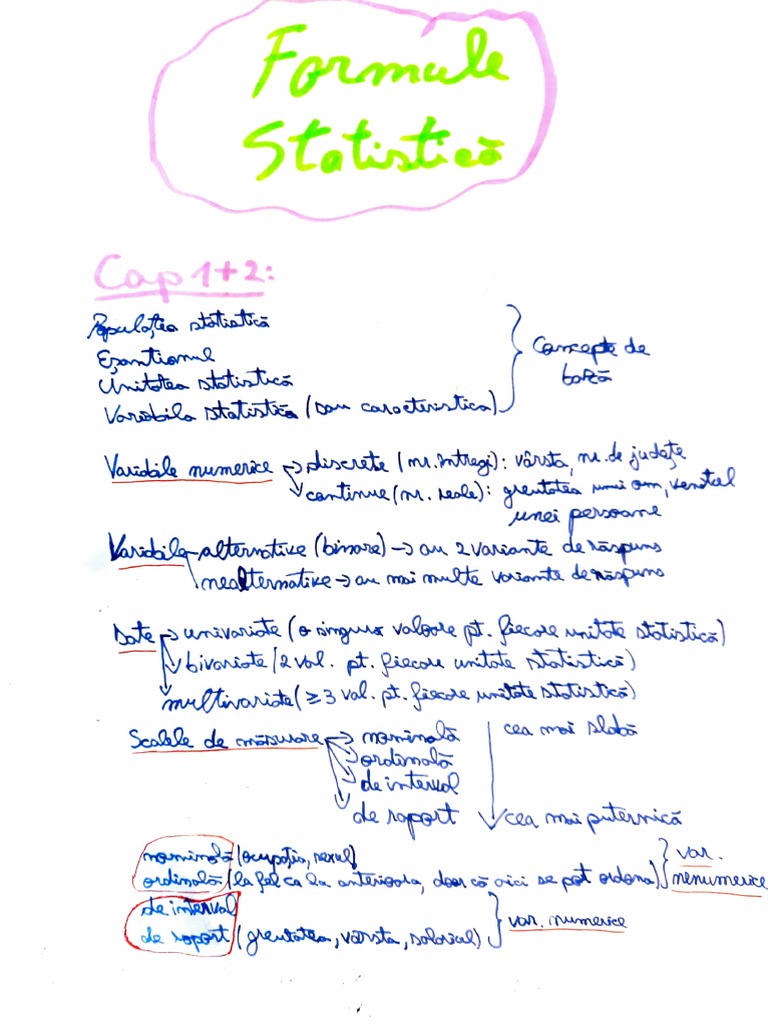 Formule
Statistică
Cap 1+2:
Populația statistică
Eșantionul
Unitatea statistică
Variabila statistică (sau caracteristica)
Concepte de
bază
Variabile numerice → discrete (nr. întregi): vârsta, nr. de județe
→ continue (nr. reale): greutatea unui om, venitul
unei persoane
Variabile alternative (binare) → au 2 variante de răspuns
nealternative → au mai multe variante de răspuns
Date → univariate (o singură valoare pt. fiecare unitate statistică)
bivariate (2 val. pt. fiecare unitate statistică)
multivariate (≥ 3 val. pt. fiecare unitate statistică)
Scalele de măsurare → nominală
ordinală
de interval
de raport
cea mai slabă
cea mai puternică
nominală (ocupația, sexul)
ordinală (la fel ca la anterioara, doar că aici se pot ordona)
var.
nenumerice
de interval
de raport (greutatea, vârsta, salariul)
var. numerice